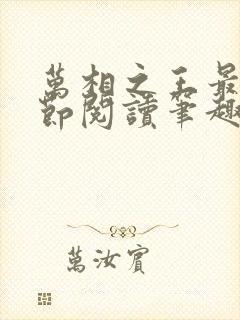 萬相之王最
節閱讀筆趣
萬汝賓